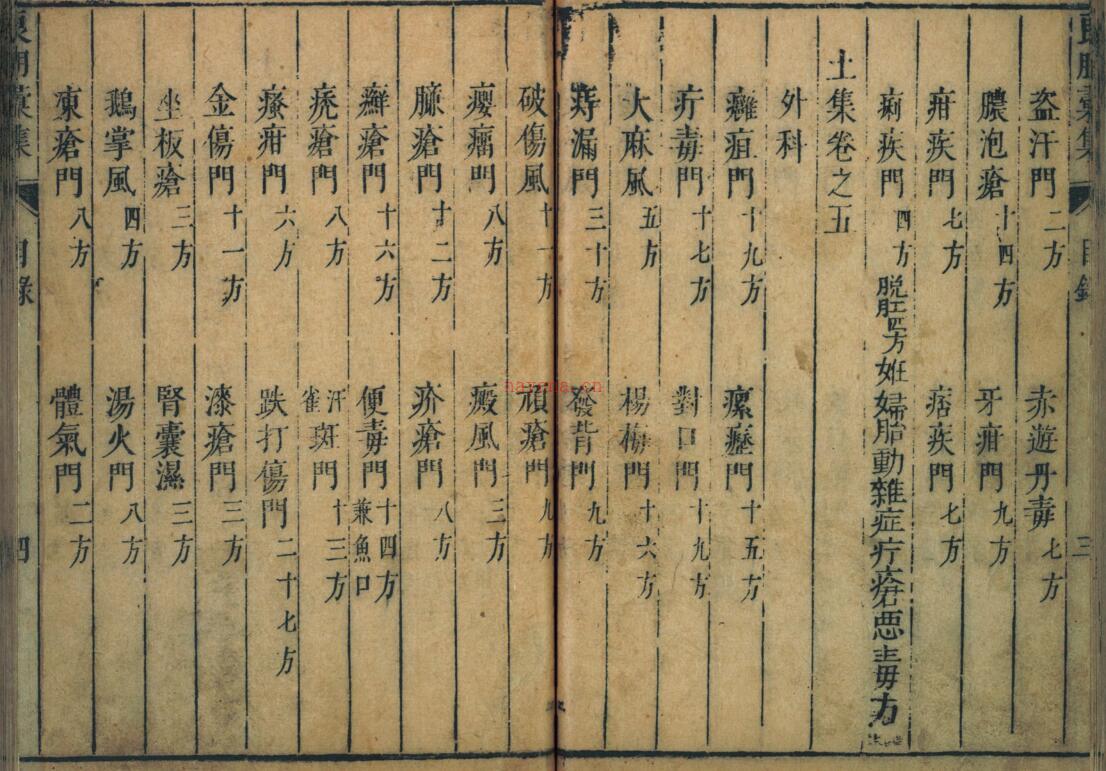 盗汗門 二方 赤遊丹毒 七方
膿泡瘡 十四方 牙疳門 九方
疳疾門 七方 痞疾門 七方
痢疾門 四方 脱肛四方 妊婦胎動雜症疔瘡惡毒方
土集卷之五
外科
癰疽門 十九方 瘰癧門 十五方
疔毒門 十七方 對口門 十九方
大麻風 五方 楊梅門 十六方
痔漏門 三十方 發背門 九方
破傷風 十一方 頑瘡門 九方
癭瘤門 八方 癜風門 三方
臁瘡門 十二方 疥瘡門 八方
癬瘡門 十六方 便毒門 十四方 兼魚口
禿瘡門 八方 汗雀斑門 十三方
瘙疳門 六方 跌打傷門 二十七方
金傷門 十一方 漆瘡門 三方
坐板瘡 三方 腎囊濕 三方
鵝掌風 四方 湯火門 八方
凍瘡門 八方 體氣門 二方
目錄
三
目錄
四